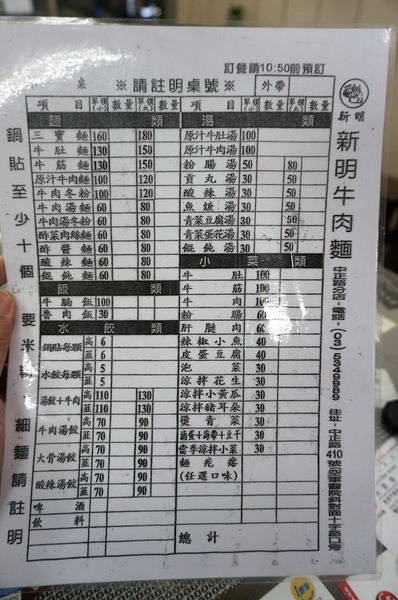 訂餐請10:50前預訂
※請註明桌號※
外帶
新明
項目 單價(小) 數量 單價(大) 數量
麵類
三寶麵 160 180
牛肚麵 130 150
牛筋麵 130 150
原汁牛肉麵 100 120
牛肉冬粉 100 120
牛肉湯麵 60 80
牛肉湯冬粉 60 80
酢菜肉絲麵 60 80
酢醬麵 60 80
酸辣麵 60 80
餛飩麵 60 80
飯類
牛腩飯 100
魯肉飯 30
水餃類
鍋貼每顆 高 6
韭 6
水餃每顆 高 5
韭 5
湯餃+牛肉 高 110 130
韭 110 130
牛肉湯餃 高 70 90
韭 70 90
大骨湯餃 高 70 90
韭 70 90
酸辣湯餃 高 70 90
韭 70 90
啤酒
飲料
項目 單價(小) 數量 單價(大) 數量
湯類
原汁牛肚湯 100
原汁牛肉湯 100
粉腸湯 50 80
貢丸湯 30 50
酸辣湯 30 50
魚焿湯 30 50
青菜豆腐湯 30 50
青菜蛋花湯 30 50
餛飩湯 30 50
小菜類
牛肚 100
牛筋 100
牛肉 100
粉腸 60
肝腱肉 60
辣椒小魚 40
皮蛋豆腐 40
泡菜 30
涼拌花生 30
涼拌小黃瓜 30
涼拌豬耳朵 30
燙青菜 30
滷蛋+海帶+豆干 30
當季涼拌小菜 30
麵疙瘩
(任選口味)
總計
鍋貼至少十個 要米 細麵請註明
新明牛肉麵
中正路分店。電話。(03)5349989 住址。中正路410號